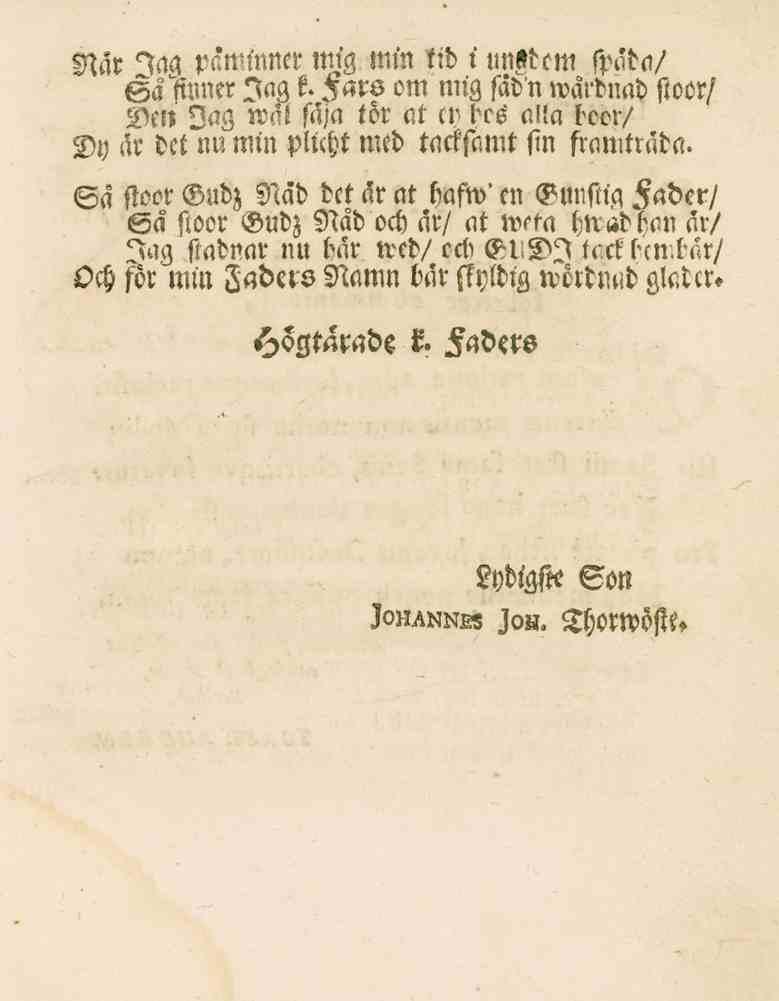 När Jag påminner mig min tid i ungdem späda/
Så finner Jag k. Fars om mig såd'n wårdnad stoor/
Den Jag wäl säja tör at ey hos alla boor/
Dy är det nu min plicht med tacksamt sin framträda.
Så stoor Gudz Nåd det är at hafw' en Gunstig Fader/
Så stoor Gudz Nåd och är/ at weta hwad han är/
Jag stadnar nu här wed/ och GUDI tack hembär/
Och för min Faders Namn bär skyldig wördnad glader.
Högtärade k. Faders
Lydigste Son
JOHANNES JOH. Thorwöste.